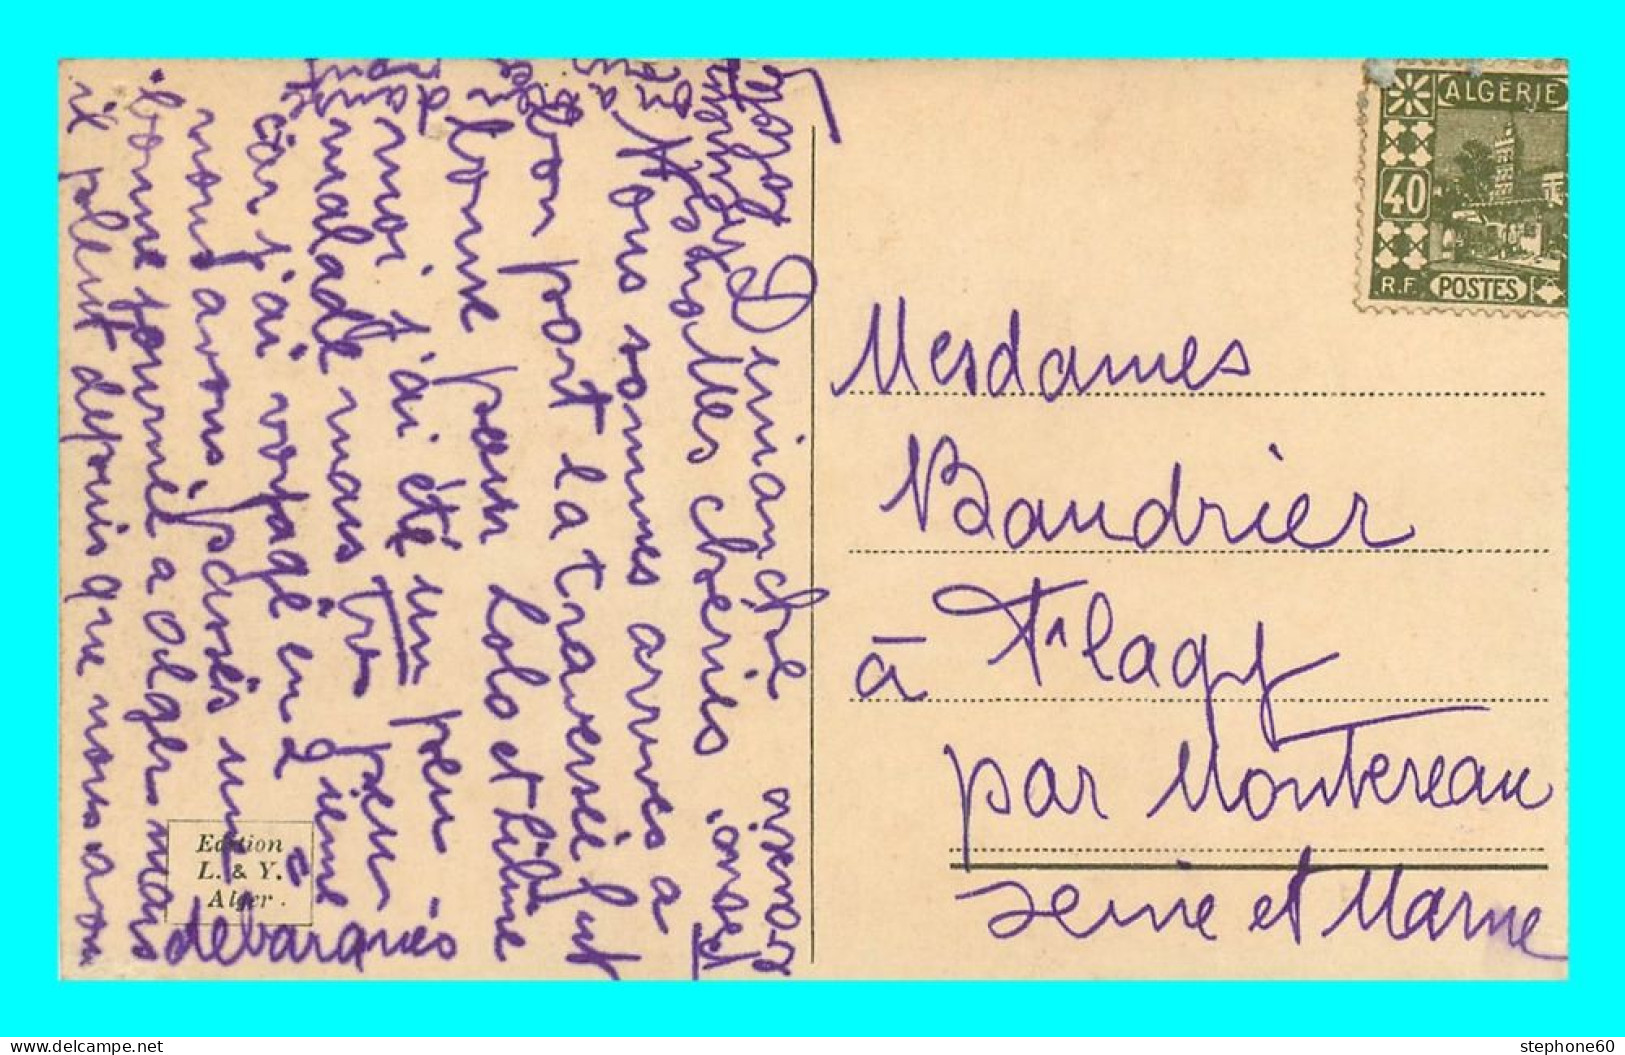 Dimanche
Mes chéries
Nous sommes arrivés à
bon port la traversée fut
bonne pour Lolo et
moi j'ai été un peu
malade mais très peu
car j'ai voyagé en 2ième
nous avons passés une
bonne journée a Alger mais
il pleut depuis que nous avons
débarqués
Edition
L. & Y.
Alger.
ALGÉRIE
40
R.F. POSTES
Mesdames
Baudrier
à Flagy
par Montereau
Seine et Marne
stephone60
www.delcampe.net